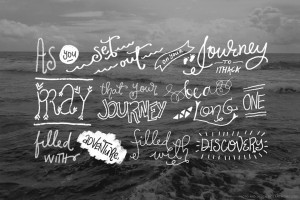 As you set out on your Journey
TO
PRAY that your JOURNEY be a LONG ONE
filled with ADVENTURE filled with DISCOVERY